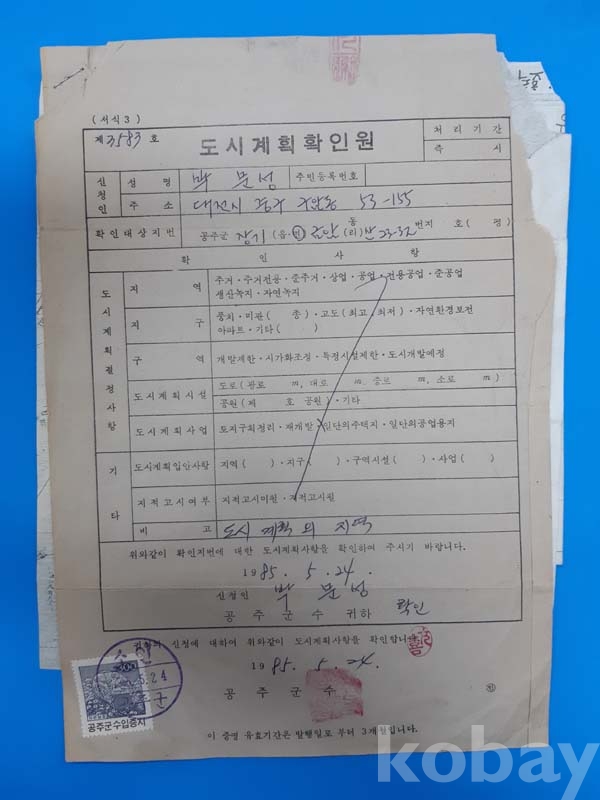 (서식3)
제3583호
도시계획확인원
처리기간
즉시
신청인
성명 박문성 주민등록번호
주소 대전시 동구 53-155
확인대상지번 공주군 장기 (읍·면) 동(리) 산23-32 번지 호 ( 평)
확인사항
도시계획결정사항
지역 주거·주거전용·준주거·상업·공업·전용공업·준공업
생산녹지·자연녹지
지구 풍치·미관( 종)·고도(최고·최저)·자연환경보전
아파트·기타( )
구역 개발제한·시가화조정·특정시설제한·도시개발예정
도시계획시설 도로(광로 m, 대로 m, 중로 m, 소로 m)
공원(제 호 공원)·기타
도시계획사업 토지구획정리·재개발·일단의주택지·일단의공업용지
기타
도시계획입안사항 지역( )·지구( )·구역시설( )·사업( )
지적고시여부 지적고시미원·지적고시원
비고 도시계획외 지역
위와같이 확인지번에 대한 도시계획사항을 확인하여 주시기 바랍니다.
1985. 5. 24.
신청인 박문성
공주군수 귀하
귀하의 신청에 대하여 위와같이 도시계획사항을 확인합니다.
1985. 5. 24.
공주군수
이 증명 유효기간은 발행일로 부터 3개월입니다.
300
5.24
공주군수입증지
kobay